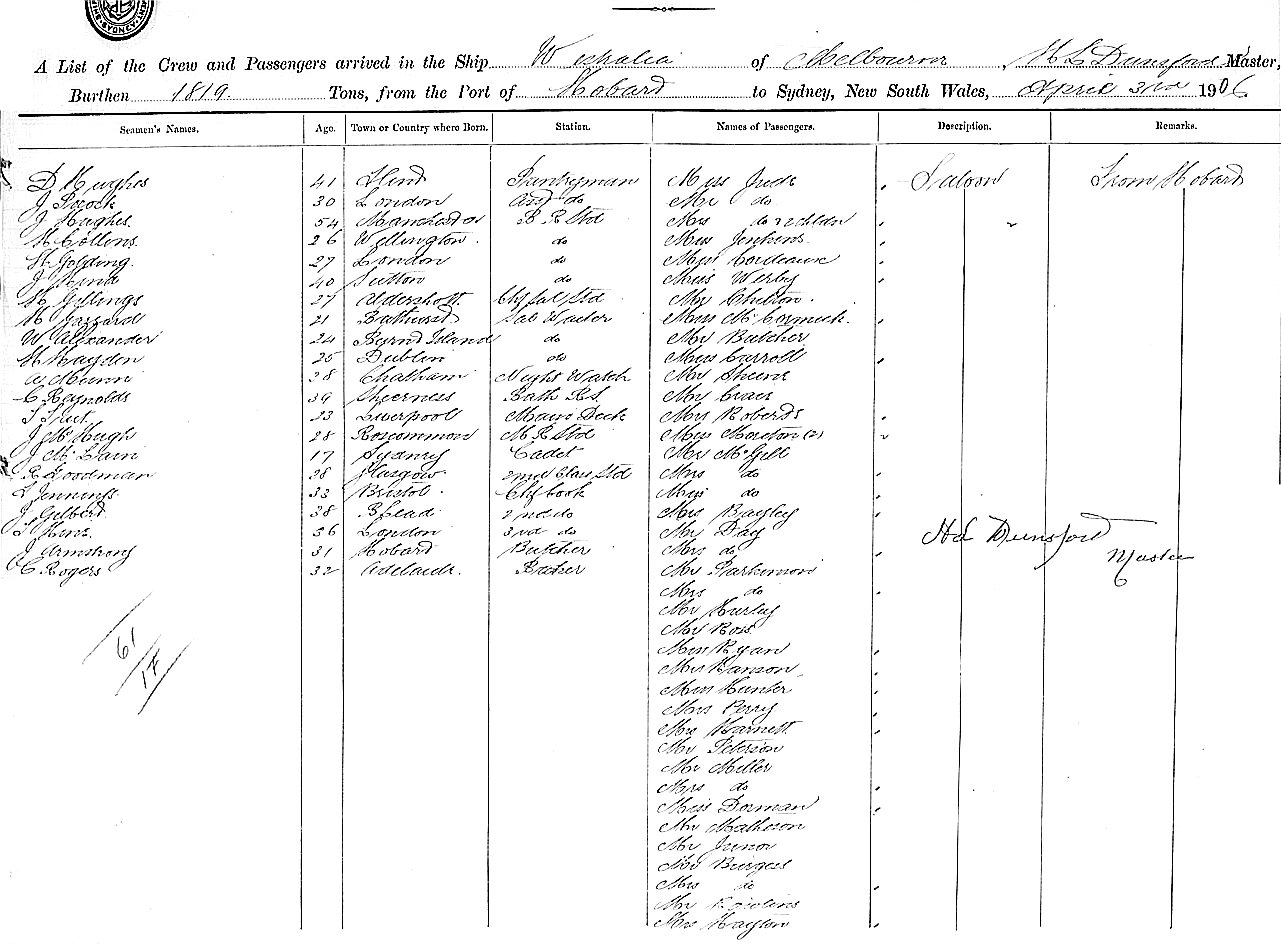 A List of the Crew and Passengers arrived in the Ship Westralia of Melbourne, H L Dunsford Master,
Burthen 1819. Tons, from the Port of Hobard to Sydney, New South Wales, April 3rd 1906
Seamen's Names. Age. Town or Country where Born. Station. Names of Passengers. Description. Remarks.
D Hughes 41 Flint Pantryman Miss Jude Saloon From Hobard
J 30 London Asst do Mr do
J Hughes 54 Manchester B R Std Mrs do & 2 childn
H Collins 26 Wellington. do Miss Jenkins
H Golding. 27 London do Miss Cordeaux
J Hind 40 Sutton do Miss Werby
H Gillings 27 Aldershott Chf Sal Std Mr Chilton.
H Hazzard 21 Bathurst Sal Waiter Miss McCormick.
W Alexander 24 Island do Mr Butcher
H Hayden 25 Dublin do Miss Carroll
A Munn 38 Chatham Night Watch Mr Sheens
C Reynolds 39 Sheerness Bath R S. Mr
S 23 Liverpool Main Deck Mrs Roberts
J McHugh 28 Roscommon M R Std Miss Moreton (2)
J McBain 17 Sydney Cadet Mr McGill
R Goodman 28 Glasgow 2nd Class Std Mrs do
L Jennings 33 Bristol. Chf Cook Miss do
J Gilbert 38 B head 2nd do Mrs Bayley
36 London 3rd do Mr Day H L Dunsford
J Armstrong 31 Hobard Butcher Mrs do Master
C Rogers 32 Adelaide. Baker Mr Parkinson
Mrs do
Mr Hurley
Mr Ross
Miss Ryan
Mrs Hanson
Miss Hunter
Mrs Perry
Mrs Harnett
Mr Peterson
Mr Miller
Mrs do
Miss Dorman
Mr Matheson
Mr Junor
Mr Burgess
Mrs do
Mr
Mrs Hayton
61
17